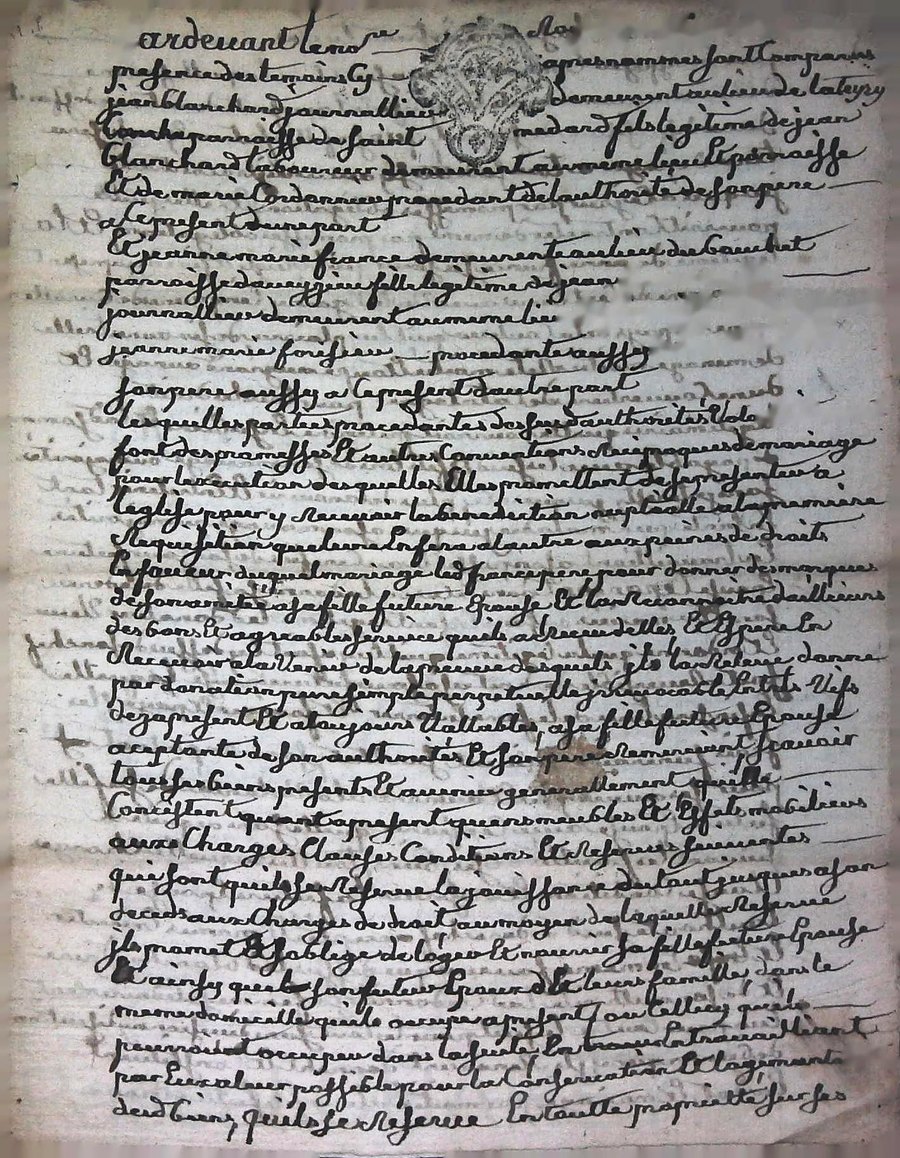 ardevant le no.re Ro
presence des temoins Cy apres nommes sont Comparus
jean blanchard journallier demeurent au lieu de la
Couche parroisse de saint medard fils legitime de jean
blanchard laboureur demeurent au meme lieu Et parroisse
Et de marie procedant de lauthorité de son pere
a Ce present dune part
Et jeanne marie france demeurente au lieu du bouchet
parroisse daveyzieu fille legitime de jean
journallier demeurent au meme lie
jeanne marie forisieu procedante aussy
son pere aussy a Ce present dautre part
lesquelles parties procedantes de susd authorités Et de
font des promesses Et autres Convantions Reciproques de mariage
pour lexecution desquelles Elles promettent de se presenter a
leglise pour y Recevoir la benediction nuptialle a la premiere
Requisition que lune En fera a lautre aux peines de droits
En faveur duquel mariage led france pere pour donner des marques
de son amitié a sa fille future Epouse Et la Recompencer dailleurs
des bons Et agreables service quil a Recu delles Et Espere En
Recevoir a lavenir de la preuve desquels jl la Releve donne
par donation pure simple perpetuelle jrrevocable Entres Vifs
dez apresent Et a toujours Vallable, a sa fille future Epouse
aceptante de son authorités Et son pere Remerciant scavoir
tous ses biens presents Et avenir generallement quelle
Concistent quant apresent quens meubles Et Effets mobiliers
aux Charges Clauses Conditions Et Reserves suivantes
qui sont quil se Reserve la jouissance du tout jusques a son
deceds aux Charges de droit au moyen de laquelle Reserve
jl promet Et soblige de loger Et nourrir sa fille future Epouse
Et ainsy que son futur Epoux Et leurs famille dans le
meme domicille quil occupe apresent / ou Celluy quil
pourroient occuper dans la suitte, En travaillient
par Eux a leur possible pour la Conservation Et logiments
desd biens, quil se Reserve En toutte proprietté sur ses